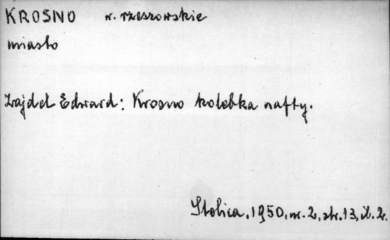 KROSNO w. rzeszowskie
miasto
Zajdel Edward: Krosno kolebka nafty.
Stolica, 1950, nr. 2, str. 13, il. 2.